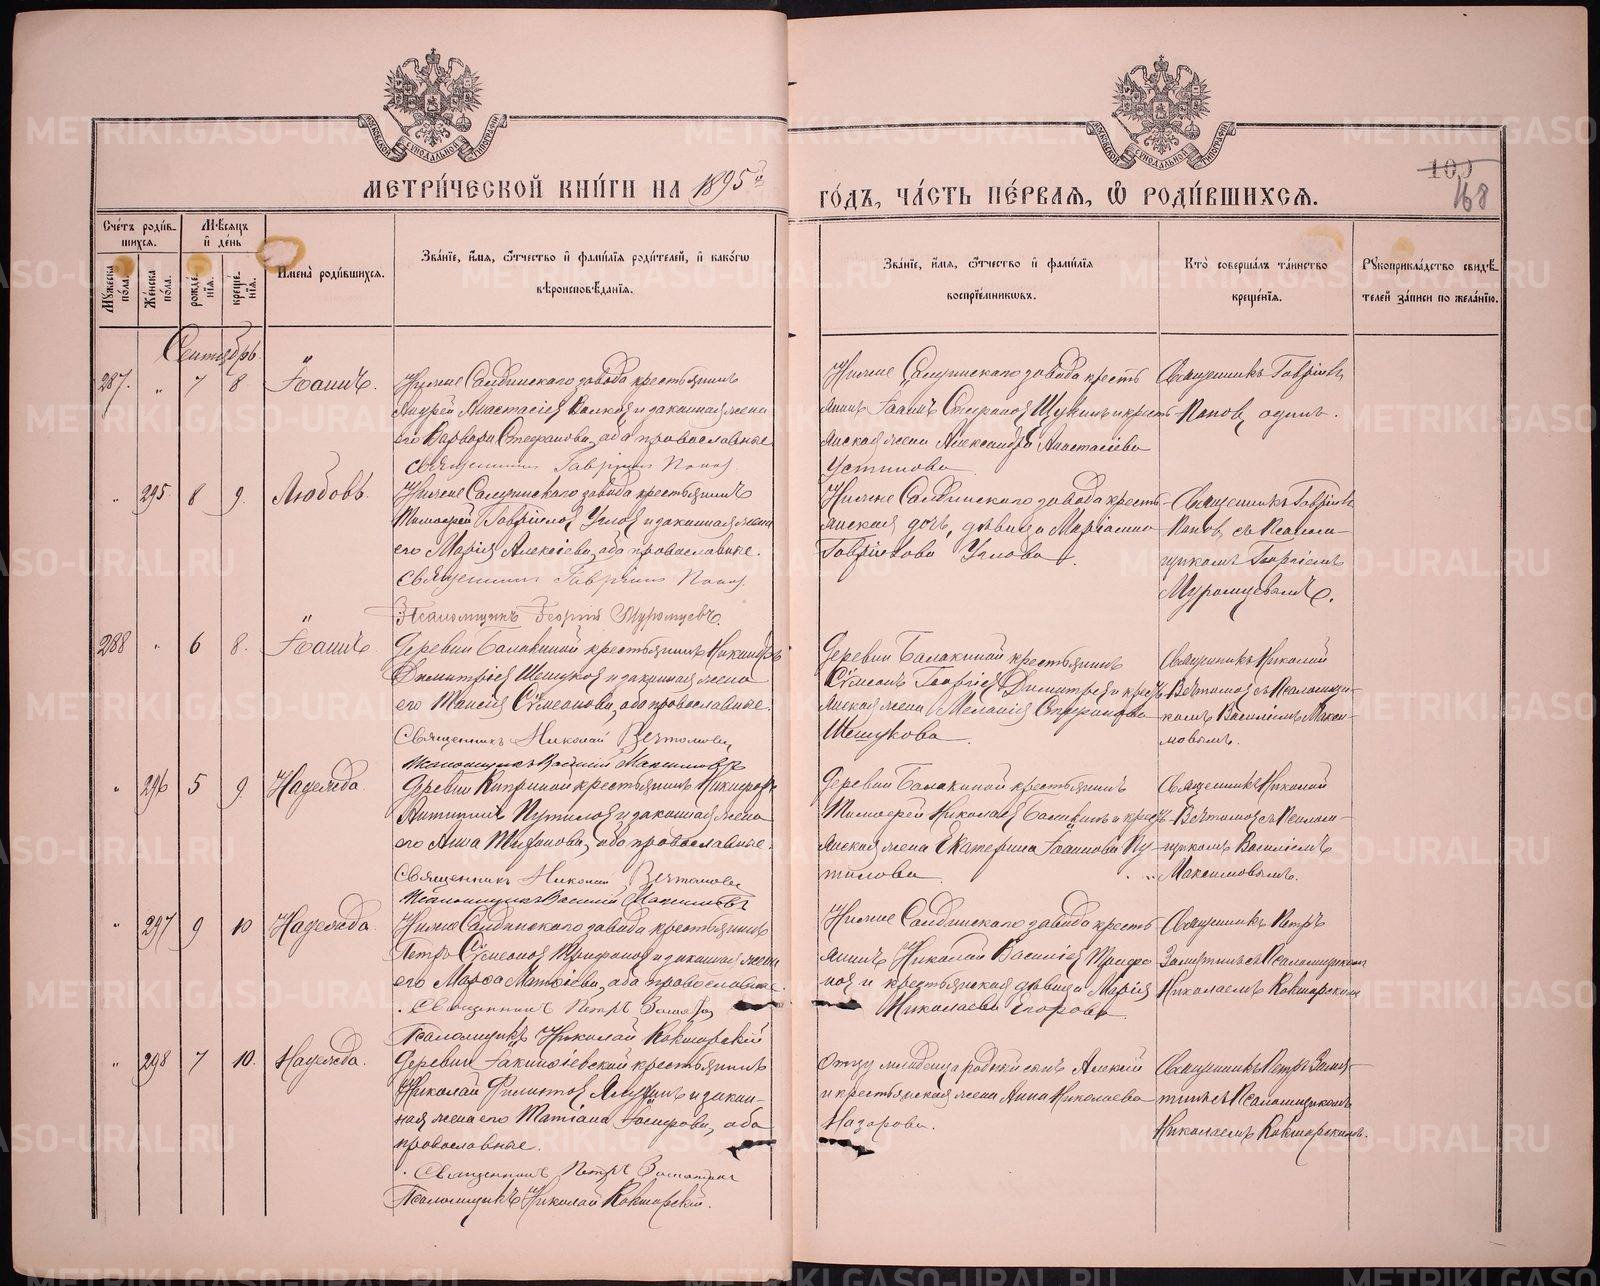 МЕТРИ́ЧЕСКОЙ КНИ́ГИ НА 1895й
ГО́ДЪ, ЧА́СТЬ ПЕ́РВАѦ, Ѡ҆ РОДИ́ВШИХСѦ.
100
168
Сче́тъ роди́в-
шихсѧ.
Мꙋ́жеска по́ла.
Же́нска по́ла.
Мѣ́сѧцъ и҆ де́нь
рожде́нїѧ.
креще́нїѧ.
Имена̀ роди́вшихсѧ.
Зва́нїе, и҆́мѧ, ѻ҆́тчество и҆ фами́лїѧ роди́телей, и҆ како́гѡ
вѣроисповѣ́данїѧ.
Зва́нїе, и҆́мѧ, ѻ҆́тчество и҆ фами́лїѧ
воспрїе́мникѡвъ.
Кто̀ соверша́лъ та́инство
креще́нїѧ.
Рꙋкоприкла́дство свидѣ́-
телей за́писи по жела́нїю.
Сентябрь
287. " 7 8 Іоаннъ.
Нижне Салдинскаго завода крестьянинъ
Андрей Анастасіев и законная жена
его Варвара Стефанова, оба православные
Священникъ Гавріилъ Попов
Нижне Салдинскаго завода кресть
янинъ Іоаннъ Стефанов Щукинъ и кресть
янская жена Александра Анастасіева
Устинова
Священникъ Гавріилъ
Попов, один.
" 295 8 9. Любовь.
Нижне Салдинскаго завода крестьянинъ
Тимофей Гавріилов Углов и законная жена
его Марія Алексіева, оба православные.
Священникъ Гавріилъ Попов
Псаломщикъ Георгій Муромцевъ.
Нижне Салдинскаго завода кресть
янская дочь, девица Маріамна
Гавріилова Углова
Священникъ Гавріилъ
Попов съ Псалом-
щикомъ Георгіемъ
Муромцевымъ.
288 " 6 8. Іоаннъ
Деревни Балакиной крестьянинъ Никандръ
Димитріев Шешуков и законная жена
его Таисія Сѵмеонова, оба православные.
Священникъ Николай Вечтомовъ
Псаломщикъ Василий Максимовъ
Деревни Балакиной крестьянинъ
Сѵмеонъ Георгіев Димитріев и кресть
янская жена Меланія Стефанова
Шешукова
Священникъ Николай
Вечтомов съ Псаломщи-
комъ Василіемъ Макси-
мовымъ.
" 296 5 9. Надежда.
Деревни Киприной крестьянинъ Никифоръ
Антипин Путилов и законная жена
его Анна Тифонова, оба православные.
Священникъ Николай Вечтомовъ
Псаломщикъ Василий Максимовъ
Деревни Балакиной крестьянинъ
Тимофей Николаев Балакинъ и кресть-
янская жена Екатерина Іоаннова Пу-
тилова
Священникъ Николай
Вечтомов съ Псалом-
щикомъ Василіемъ
Максимовымъ.
" 297 9 10 Надежда.
Нижне Салдинскаго завода крестьянинъ
Петръ Сѵмеонов Трифонов и законная жена
его Марфа Матѳіева, оба православные.
Священникъ Петръ
Псаломщикъ Николай Кокшарскій
Нижне Салдинскаго завода кресть
янинъ Николай Василіев Трифо
нов и крестьянская девица Марія
Николаева Егорова
Священникъ Петръ
съ Псаломщикомъ
Николаемъ Кокшарскимъ
" 298 7 10. Надежда.
Деревни Іакинфіевской крестьянинъ
Николай Филиппов и закон-
ная жена его Татіана Іосифова, оба
православные.
Священникъ Петръ
Псаломщикъ Николай Кокшарскій.
Отцу младенца родной сынъ Алексій
и крестьянская жена Анна Николаева
Назарова.
Священникъ Петръ
съ Псаломщикомъ
Николаемъ Кокшарскимъ.